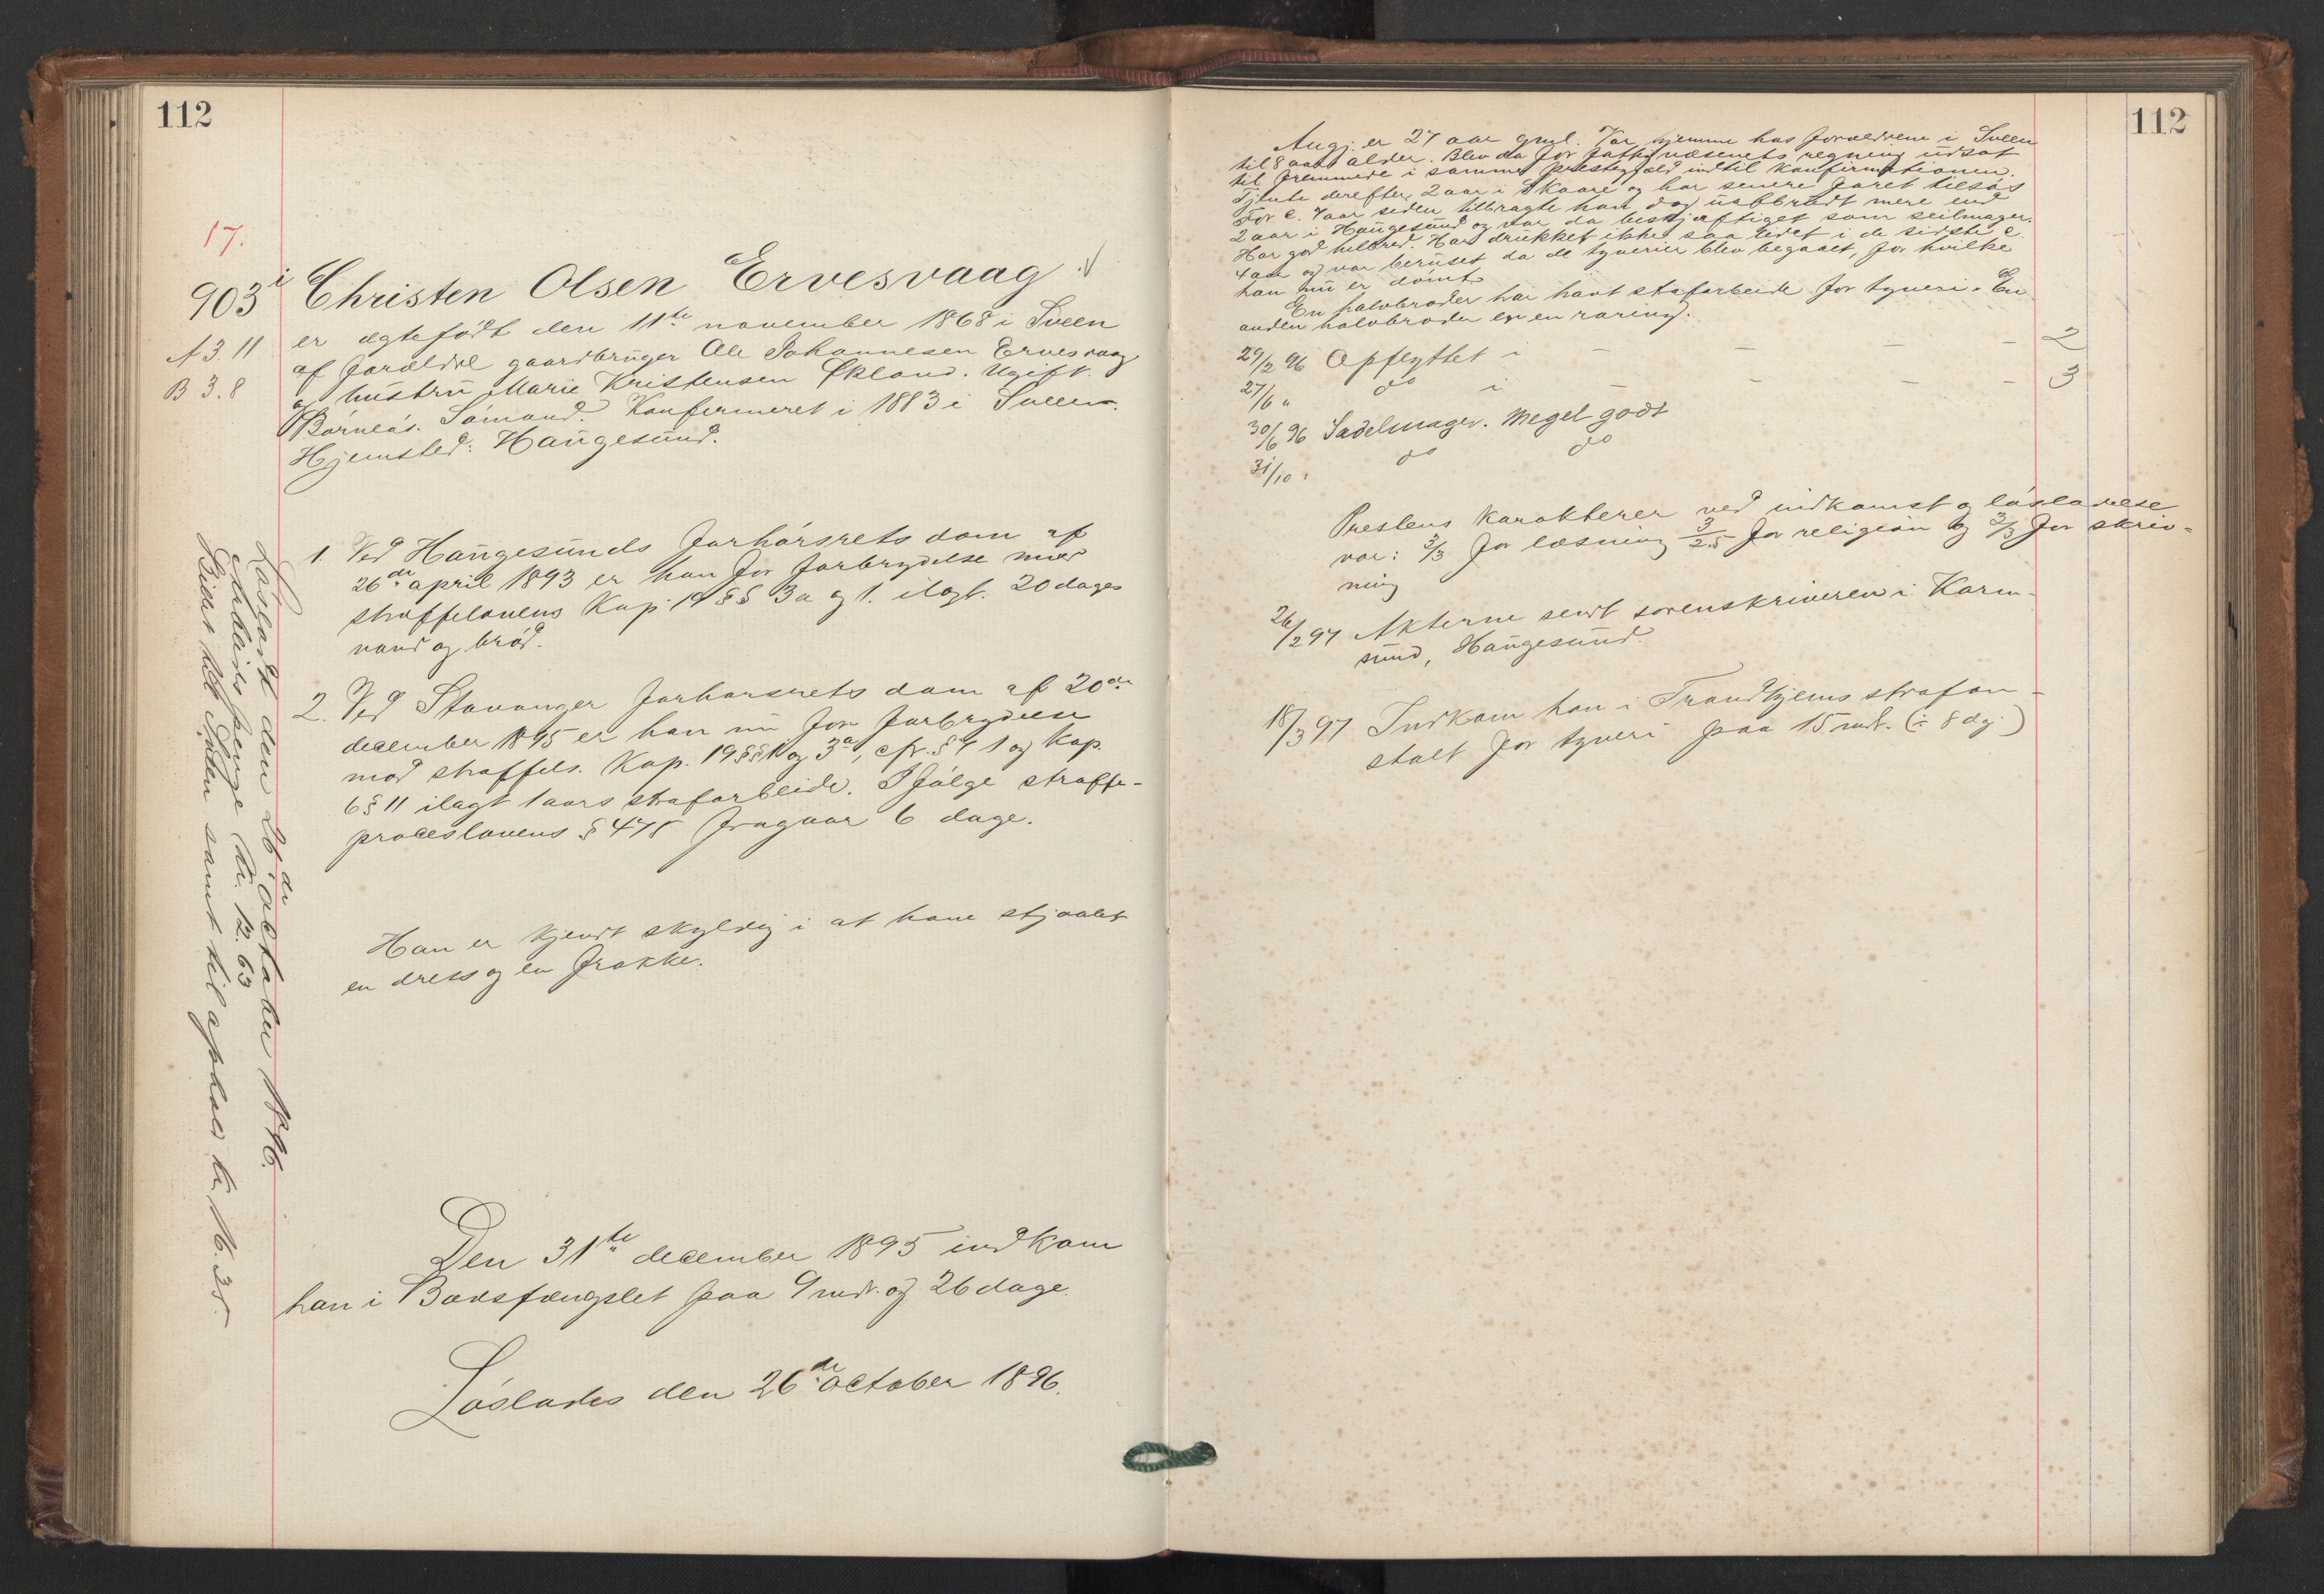 112
17.
903
A 3. 11
B 3. 8
Christen Olsen Ervesvaag
er ægtefödt den 11te november 1868 i Sveen
af forældre gaardbruger Ole Johannesen Ervesvaag
og hustru Marie Kristensen Økland. Ugift.
Börnlös. Sömand. Konfirmeret i 1883 i Sveen.
Hjemsted: Haugesund.
1. Ved Haugesunds forhörsrets dom af
26de april 1893 er han for forbrydelse mod
straffelovens Kap. 19 §§ 3a og 1. ilagt. 20 dages
vand og bröd.
2. Ved Stavanger forhörsrets dom af 20de
december 1895 er han nu for forbrydelse
mod straffels. Kap. 19 §§ 1 og 3a, cfr. § 4 1 og Kap.
6 § 11 ilagt 1 aars strafarbeide. Ifölge straffe-
proceslovens § 475 fragaar 6 dage.
Han er kjendt skyldig i at have stjaalet
en dress og en frakke.
Den 31te december 1895 indkom
han i Bodsfængslet paa 9 mdr. og 26 dage.
Löslades den 26de october 1896.
Lösladt den 26de october 1896.
Arbeidspenge kr. 12.63
samt til ophold kr. 16.35.
112
Angj. er 27 aar gml. Var hjemme hos forældrene i Sveen
til 8 aars alder. Blev da for fattigvæsenets regning udsat
til fremmede i samme prestegjæld indtil konfirmationen.
Tjente derefter 2 aar i Skaare og har senere faret tilsös
For c. 7 aar siden tilbragte han dog uafbrudt mere end
2 aar i Haugesund og var da beskjæftiget som seilmager.
Har god helbred. Har drukket ikke saa lidet i de sidste c.
4 aar og var beruset da de tyverier blev begaaet, for hvilke
han nu er dömt.
En halvbroder har havt strafarbeide for tyveri. En
anden halvbroder er en raring.
29/2 96 Opflyttet i - - - - 2
27/6 " do i - - - 3
30/6 96 Sadelmager. Meget godt
31/10 " do do
Prestens karakterer ved indkomst og lösladelse
var: 3/3 for læsning 3/2.5 for religion og 3/3 for skriv-
ning
26/2 97 Akterne sendt sorenskriveren i Karm-
sund, Haugesund.
18/3 97 Indkom han i Trondhjems strafan-
stalt for tyveri paa 15 mdr. (÷ 8 dg.)